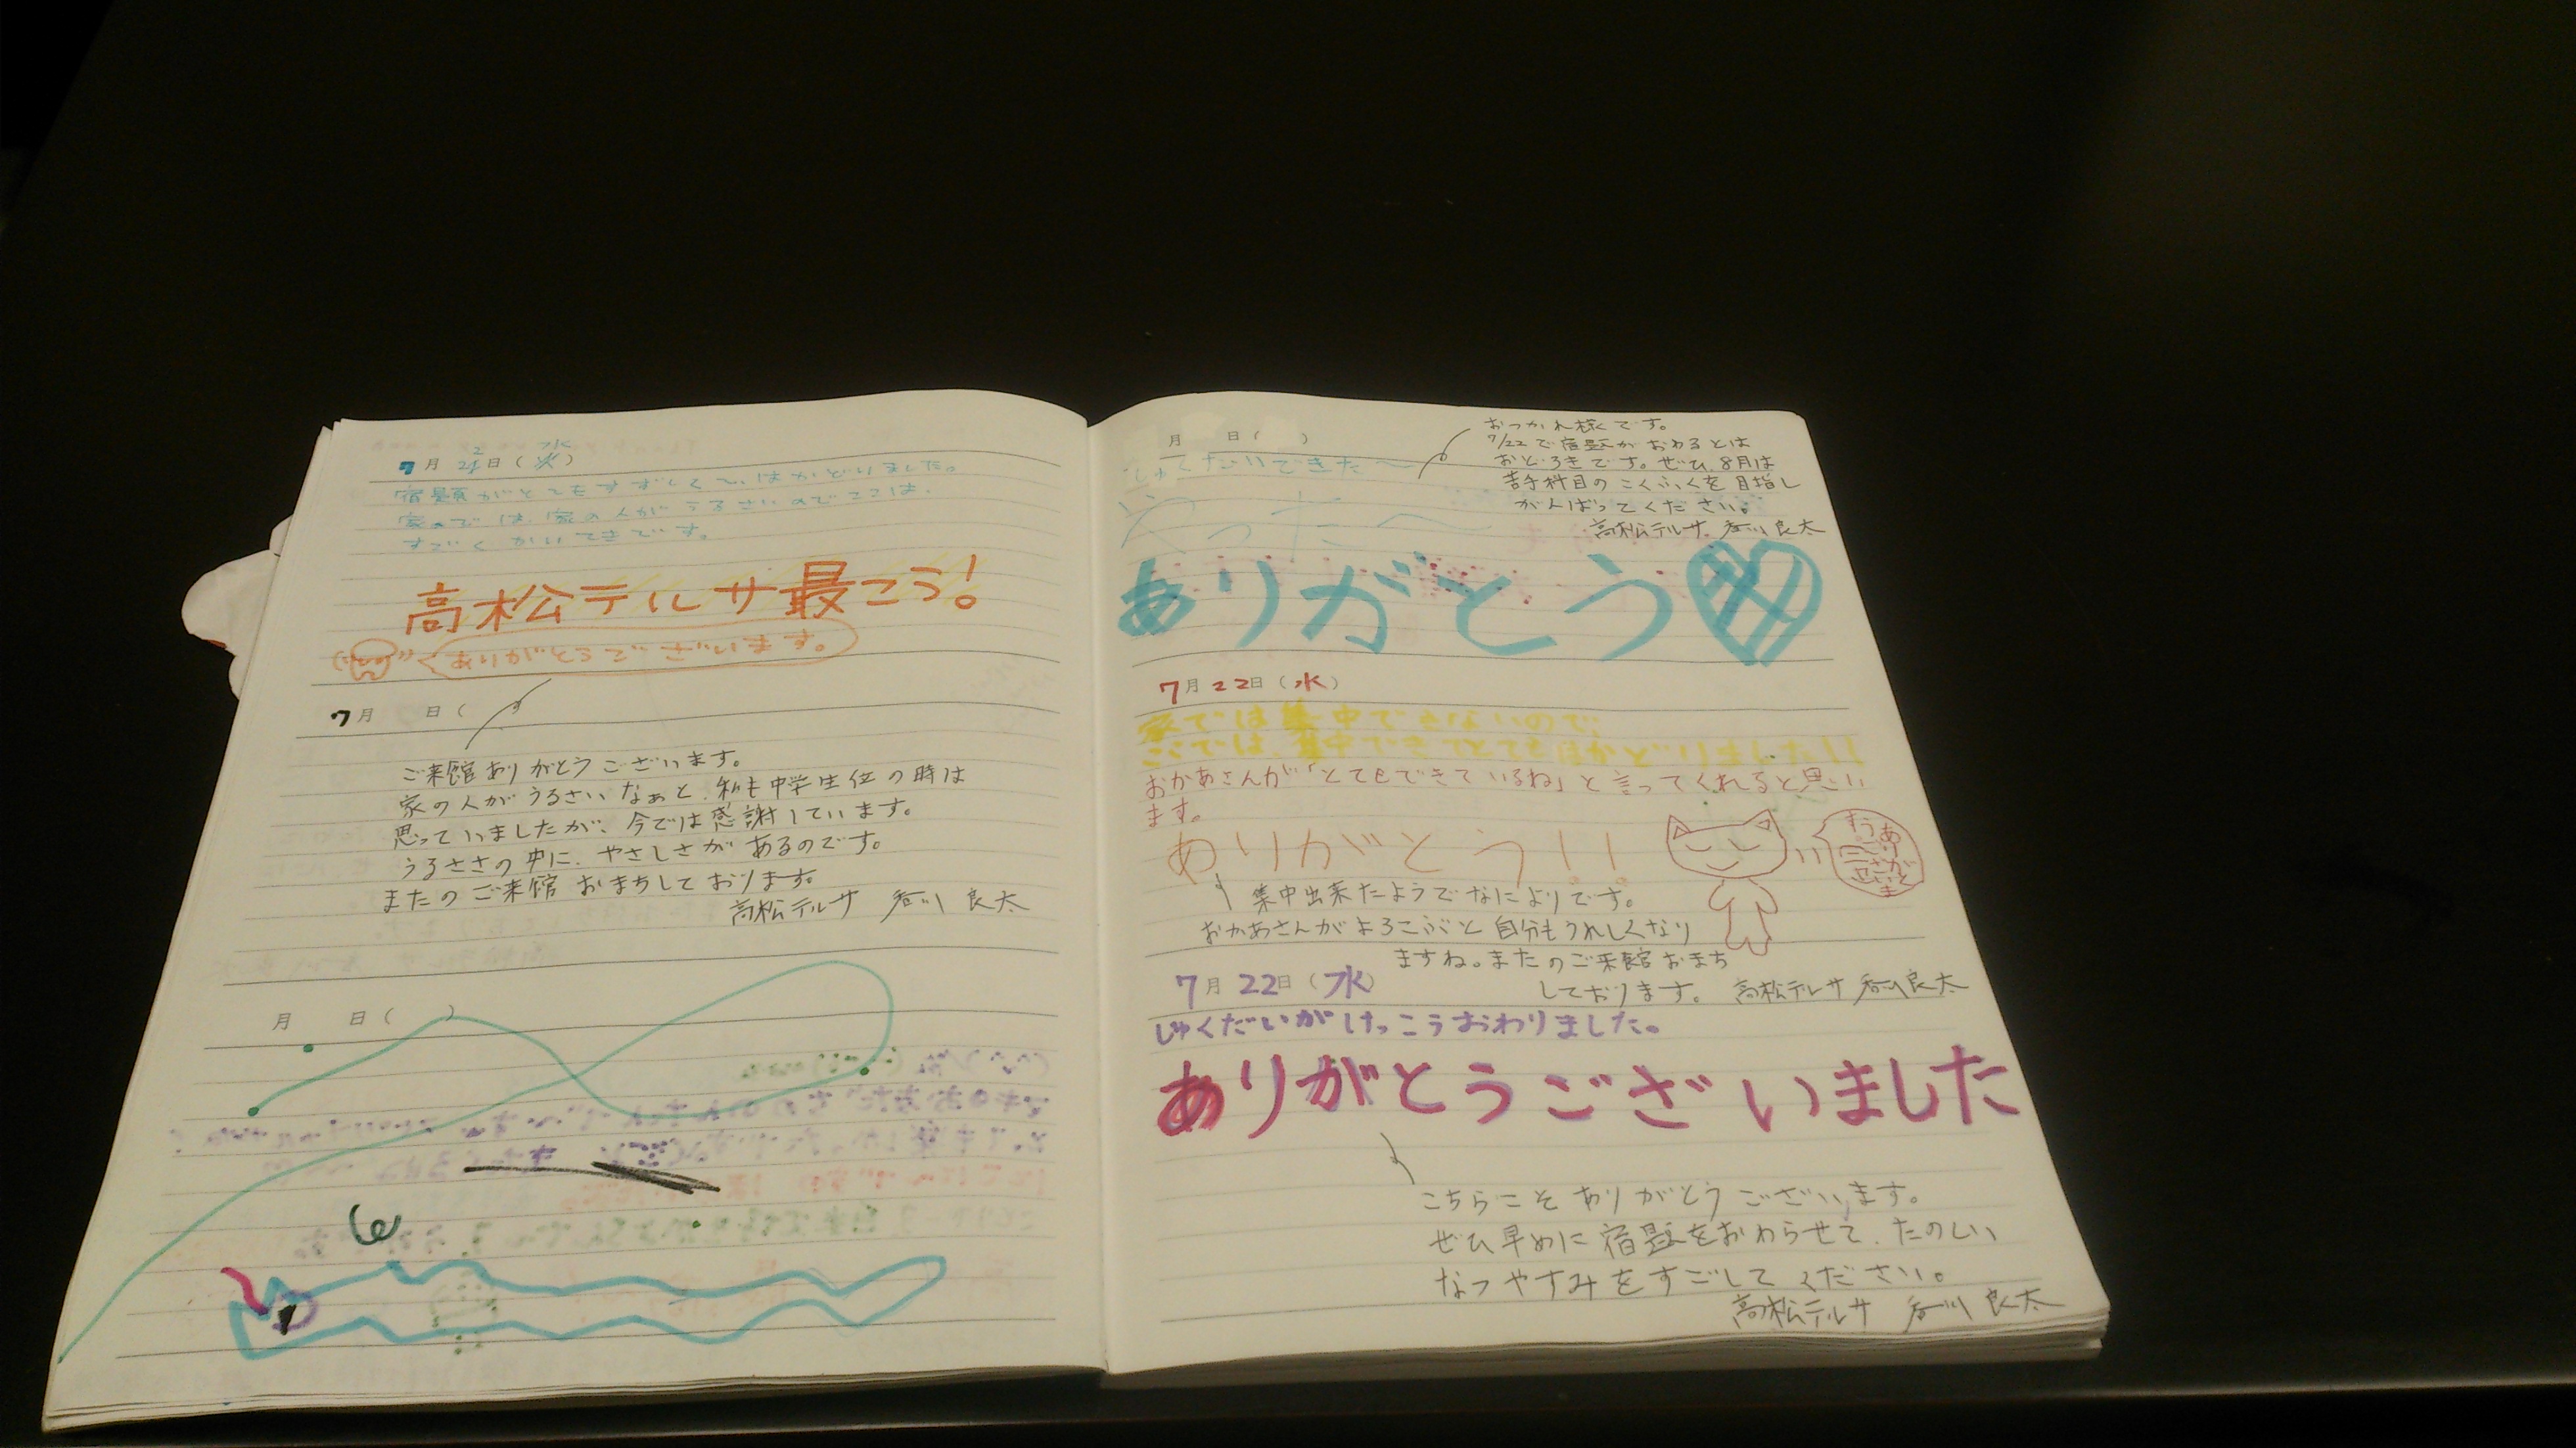 7月22日(水)
宿題がとてもすずしくて、はかどりました。
家のでは、家の人がうるさいのでここは、
すごくかいてきです。
高松テルサ最こう!
ありがとうございます。
7月 日( )
ご来館ありがとうございます。
家の人がうるさいなぁと、私も中学生位の時は
思っていましたが、今では感謝しています。
うるささの中に、やさしさがあるのです。
またのご来館おまちしております。
高松テルサ 香川 良太
月 日( )
月 日( )
しゅくだいできた〜
やった〜
ありがとう
おつかれ様です。
7/22で宿題がおわるとは
おどろきです。ぜひ、8月は
苦手科目のこくふくを目指し
がんばってください。
高松テルサ 香川良太
7月22日(水)
家では集中できないので、
ここでは、集中できてとてもはかどりました!!
おかあさんが「とてもできているね」と言ってくれると思い
ます。
ありがとう!!
ありがとうございます
集中出来たようでなによりです。
おかあさんがよろこぶと自分もうれしくなり
ますね。またのご来館おまち
しております。 高松テルサ 香川良太
7月22日(水)
しゅくだいがけっこうおわりました。
ありがとうございました
こちらこそありがとうございます。
ぜひ早めに宿題をおわらせて、たのしい
なつやすみをすごしてください。
高松テルサ 香川 良太